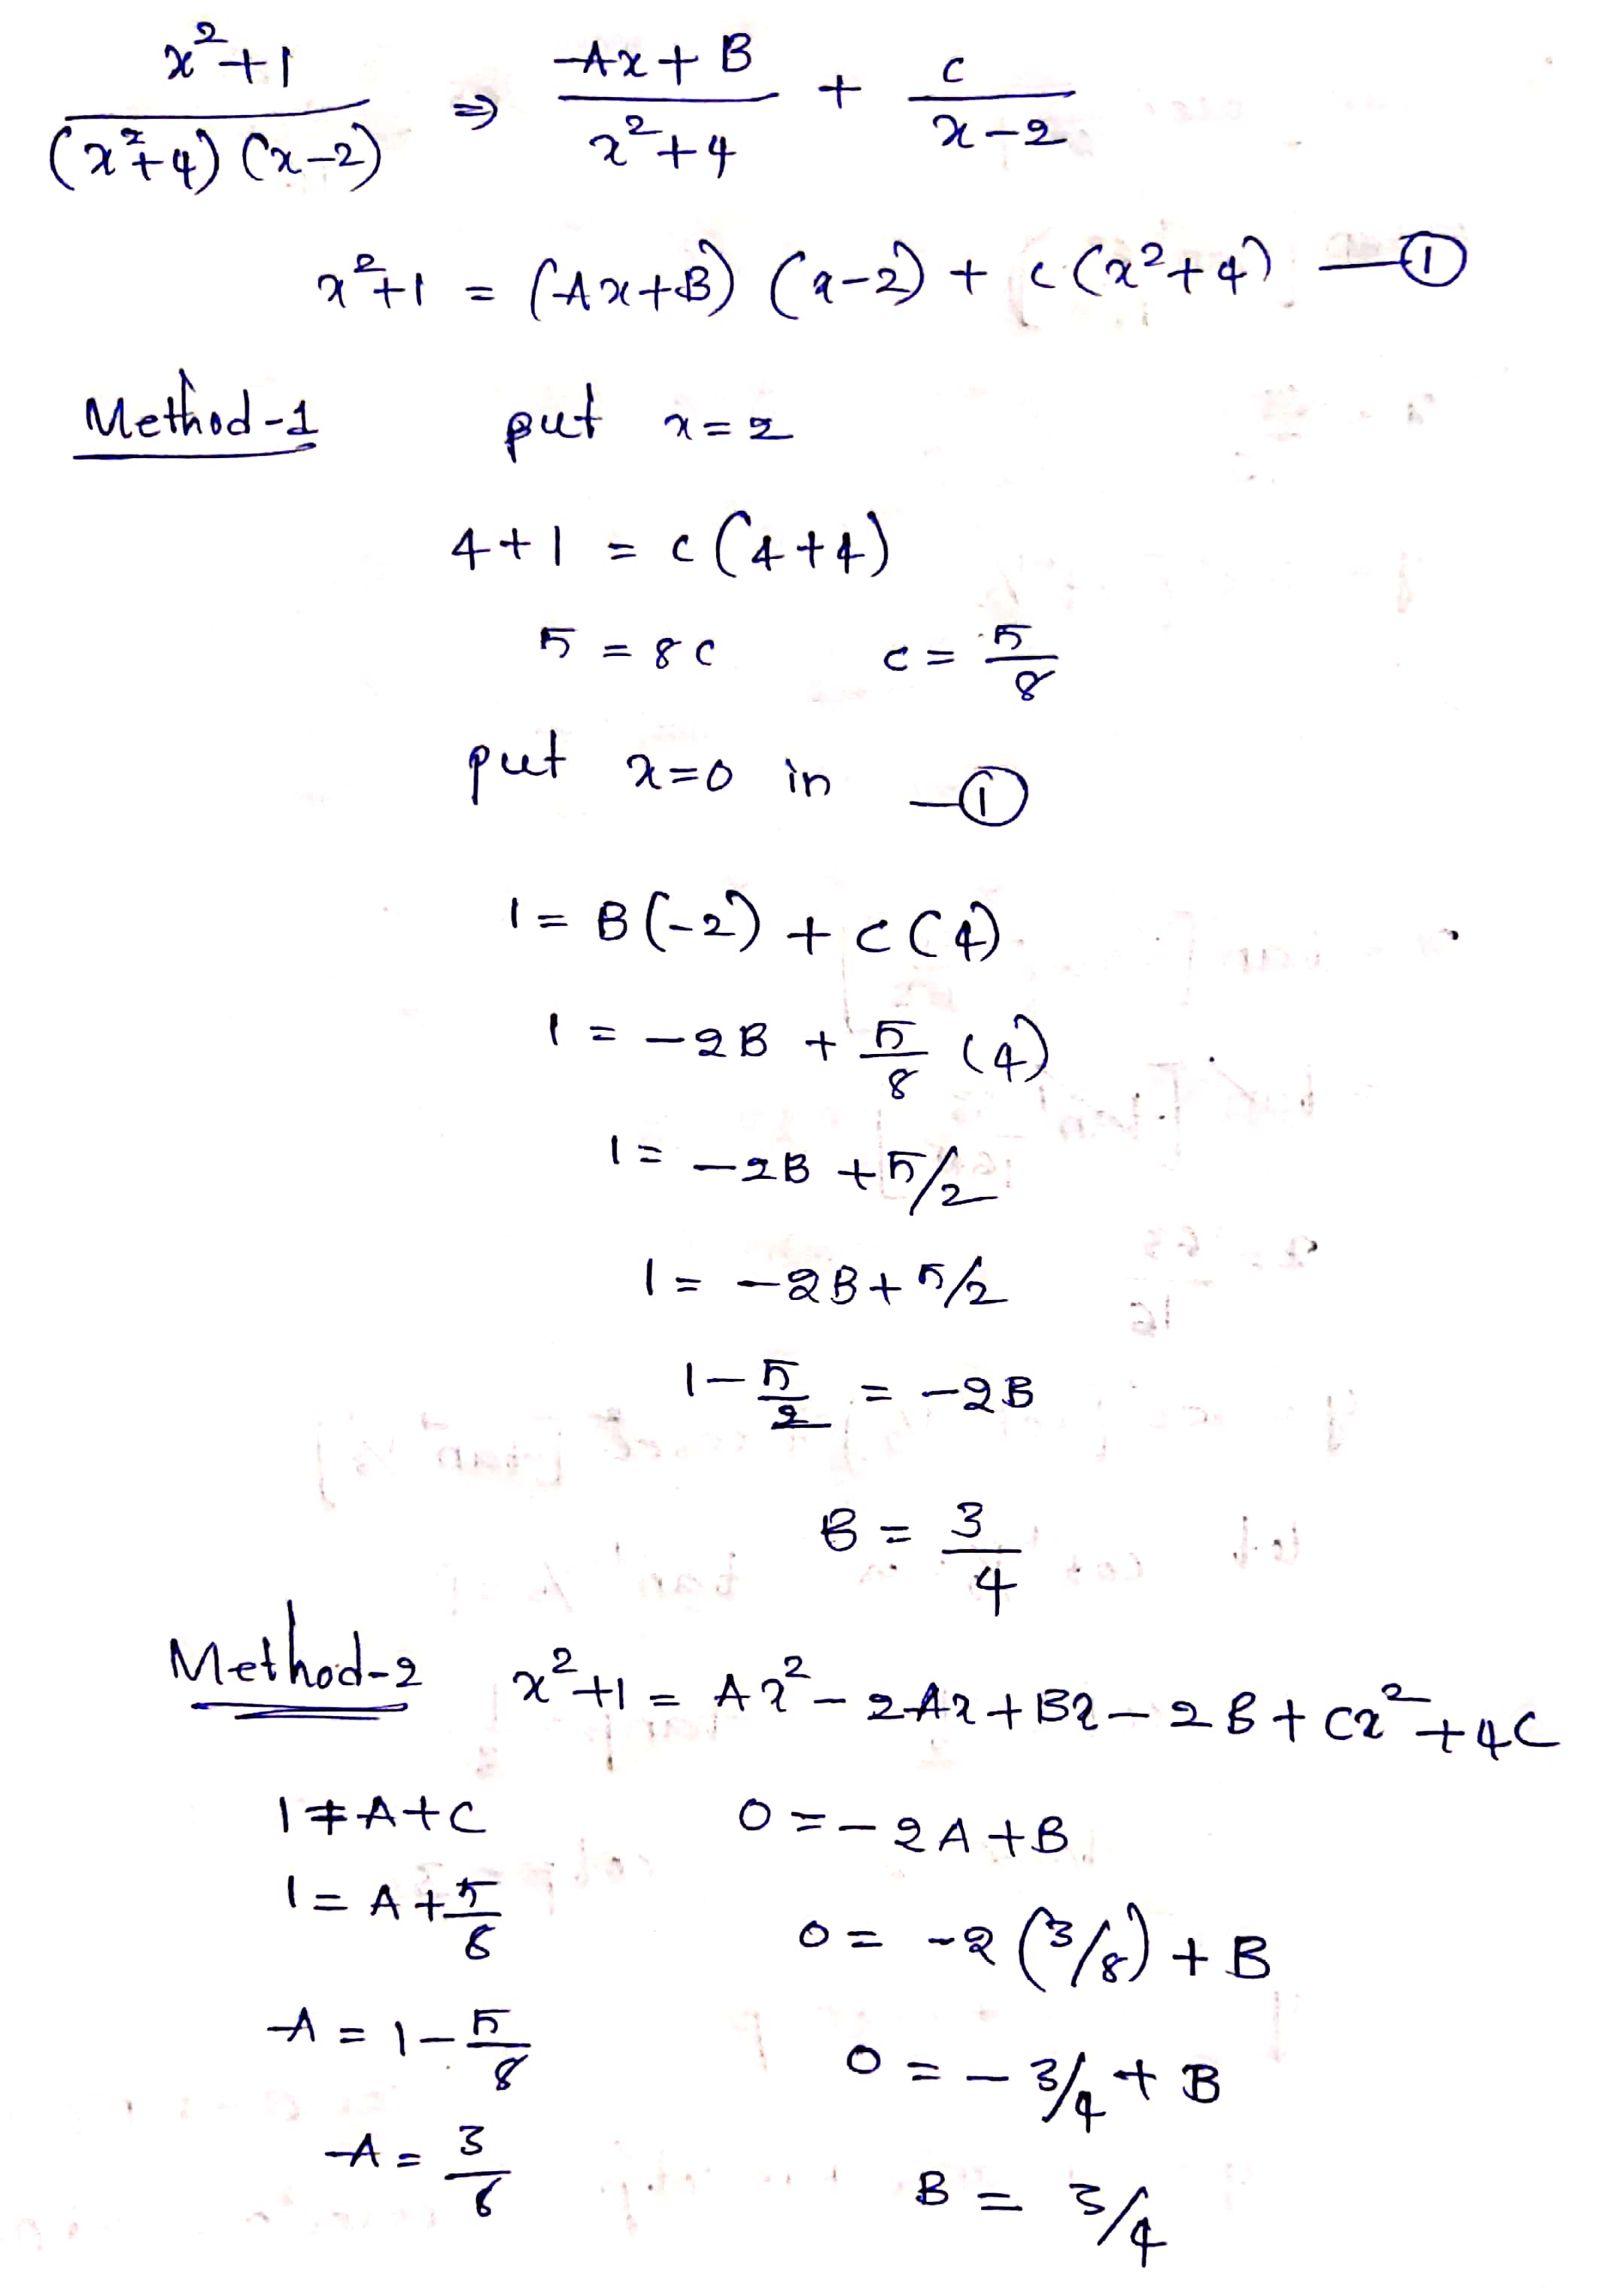 x²+1 / (x²+4)(x-2) ⇒ Ax+B / x²+4 + C / x-2
x²+1 = (Ax+B) (x-2) + C(x²+4) —①
Method-1 put x=2
4+1 = C(4+4)
5 = 8C C = 5/8
put x=0 in —①
1 = B(-2) + C(4)
1 = -2B + 5/8 (4)
1 = -2B + 5/2
1 = -2B + 5/2
1 - 5/2 = -2B
B = 3/4
Method-2 x²+1 = Ax² - 2Ax + Bx - 2B + Cx² + 4C
1 = A+C 0 = -2A+B
1 = A + 5/8 0 = -2(3/8) + B
A = 1 - 5/8 0 = -3/4 + B
A = 3/8 B = 3/4